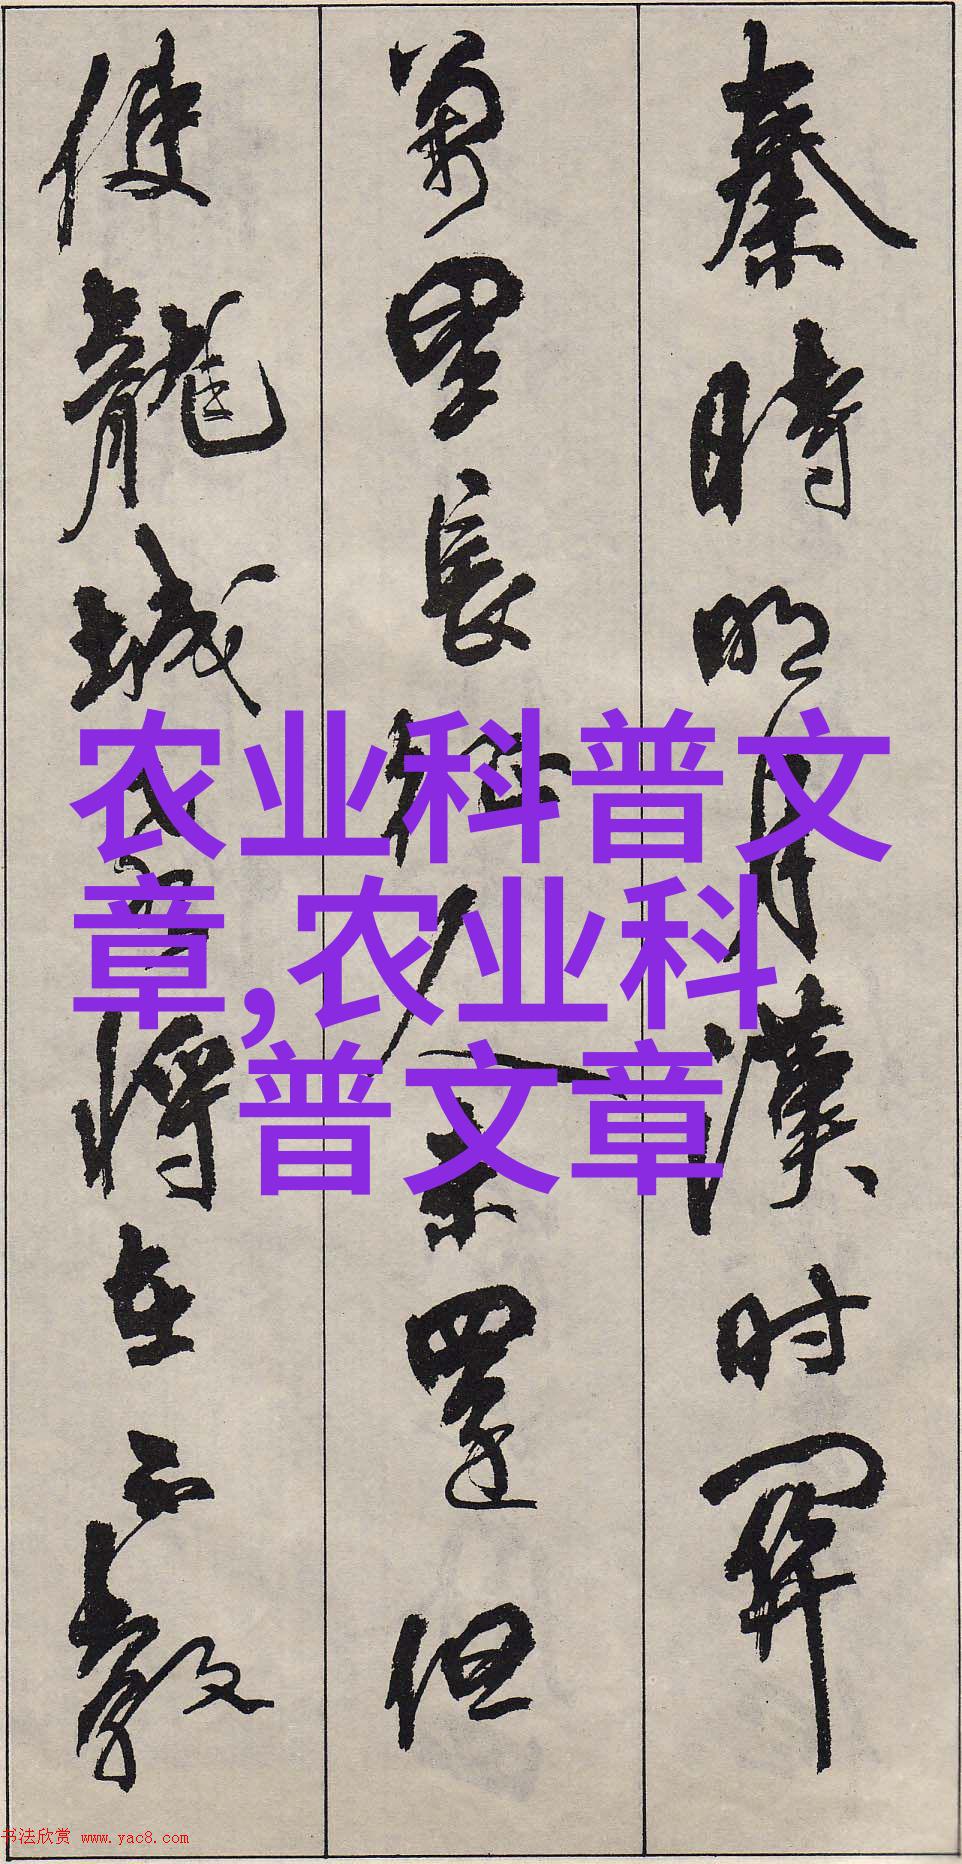 秦時明月漢时關
萬里長征人未還但
使龍城飛将在不教
农业科普文
章,农业科
普文章
书法欣赏 www.yac8.com